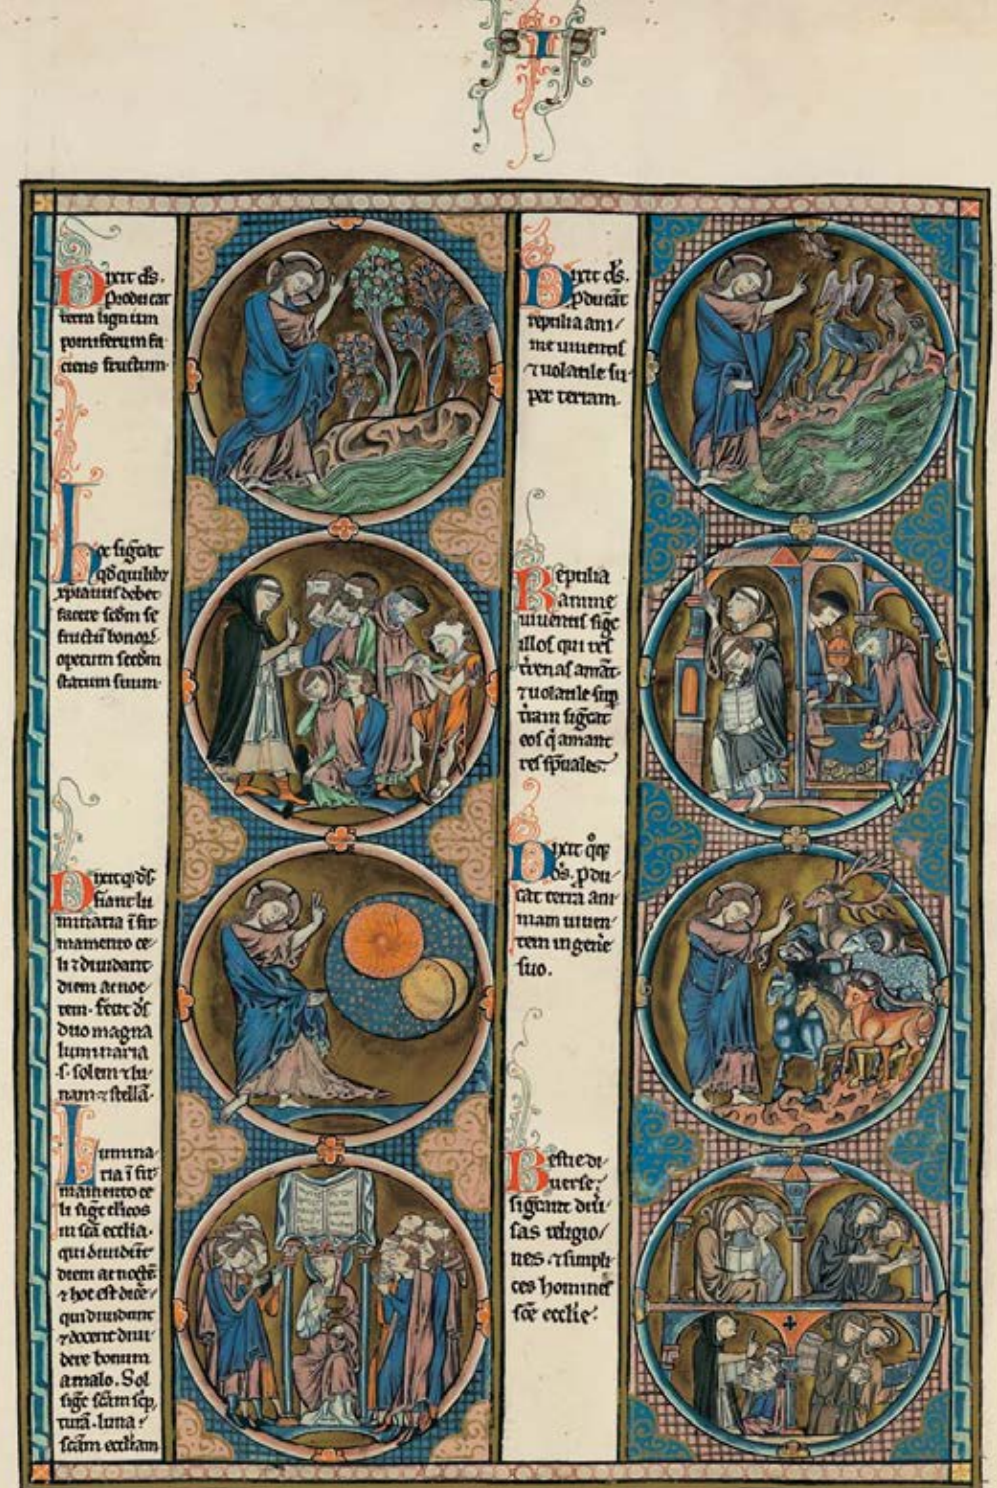 SIS
Dixit ds.
Producat
terra lignum
pomiferum fa
ciens fructum.
Hoc sigcat
qd quilibz
xpianus debet
facere scdm se
fructū bonorꝝ
operum secdm
statum suum.
Dixit qz ds
fiant lu
minaria ī fir
mamento ce
li ⁊ diuidant
diem ac noc
tem. fecit ds
duo magna
luminaria
.s. solem ⁊ lu
nam ⁊ stellā.
Lumina
ria ī fir
mamento ce
li sigt clicos
in scā ecclia.
qui diuidēt
diem ac noctē
⁊ hoc est dice
qui diuidunt
⁊ docent diui
dere bonum
a malo. Sol
sigt scam scp
turā. luna
scam eccliam
Dixit ds.
pducāt
reptilia ani
me uiuentis
⁊ uolatile su
per terram.
Reptilia
anime
uiuentis sigt
illos qui res
trenas amāt
⁊ uolatile sup
tram sigcat
eos q̄ amant
res spuales.
Dixit qoqz
ds. pdu
cat terra ani
mam uiuen
tem in genē
suo.
Bestie di
uerse
sigcant diu
sas religio
nes ⁊ simpli
ces homines
sce ecclie.